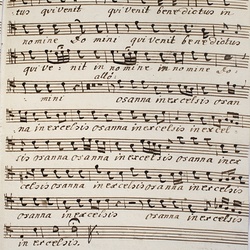 tus qui venit qui venit benedictus in
nomine Domini qui venit benedictus
qui venit in nomine in nomine Do
allo:
mini osanna in excelsis osan
na in excelsis osanna in excelsis in excel
sis osanna osanna in excelsis osanna in ex
celsis osanna in excelsis in excelsis
osanna in excelsis osanna osanna
in excelsis.